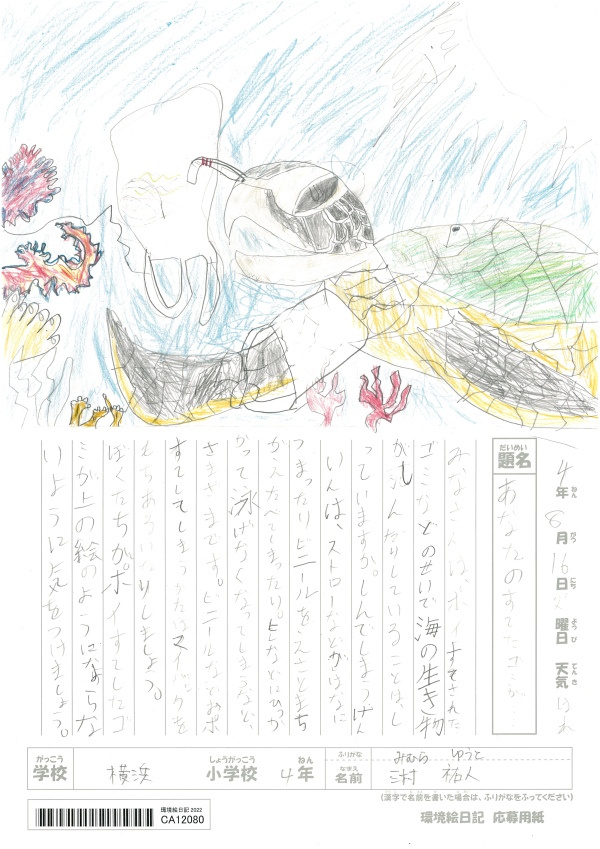 4年8月16日 曜日 天気 はれ
ねん がつ にち ようび てんき
だいめい
題名
あなたのすてたゴミが……
みなさんは、ポイすてされた
ゴミなどのせいで海の生き物
がしんだりしていることは、し
っていますか。しんでしまうげん
いんは、ストローなどがはなに
つまったりビニールをえさとまち
がえたべてしまったり。ヒレなどにひっか
かって泳げなくなってしまうなど、
さまざまです。ビニールなどをポイ
すてしてしまうかたはマイバックを
もちあるいたりしましょう。
ぼくたちがポイすてしたゴ
ミが上の絵のようにならな
いように気をつけましょう。
がっこう
学校
横浜
しょうがっこう
小学校
4年
ねん
ふりがな
みむら ゆうと
なまえ
名前
三村 祐人
(漢字で名前を書いた場合は、ふりがなをふってください)
環境絵日記 応募用紙
環境絵日記 2022
CA12080